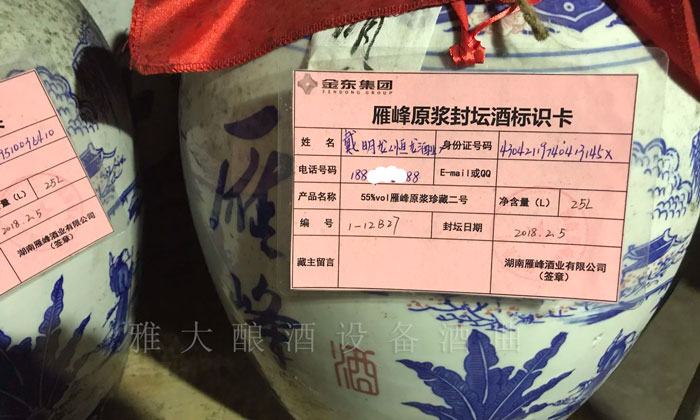 金东集团
JINDONG GROUP
雁峰原浆封坛酒标识卡
姓 名 身份证号码
电话号码 188 88 E-mail或QQ
产品名称 55%vol雁峰原浆珍藏二号 净含量（L） 25L
编 号 1-12B27 封坛日期 2018.2.5
藏主留言 湖南雁峰酒业有限公司
（签章）
卡
（L） 25L
2018.2.5
湖南雁峰酒业有限公司
（签章）
雁峰
酒
雅大酿酒设备酒曲